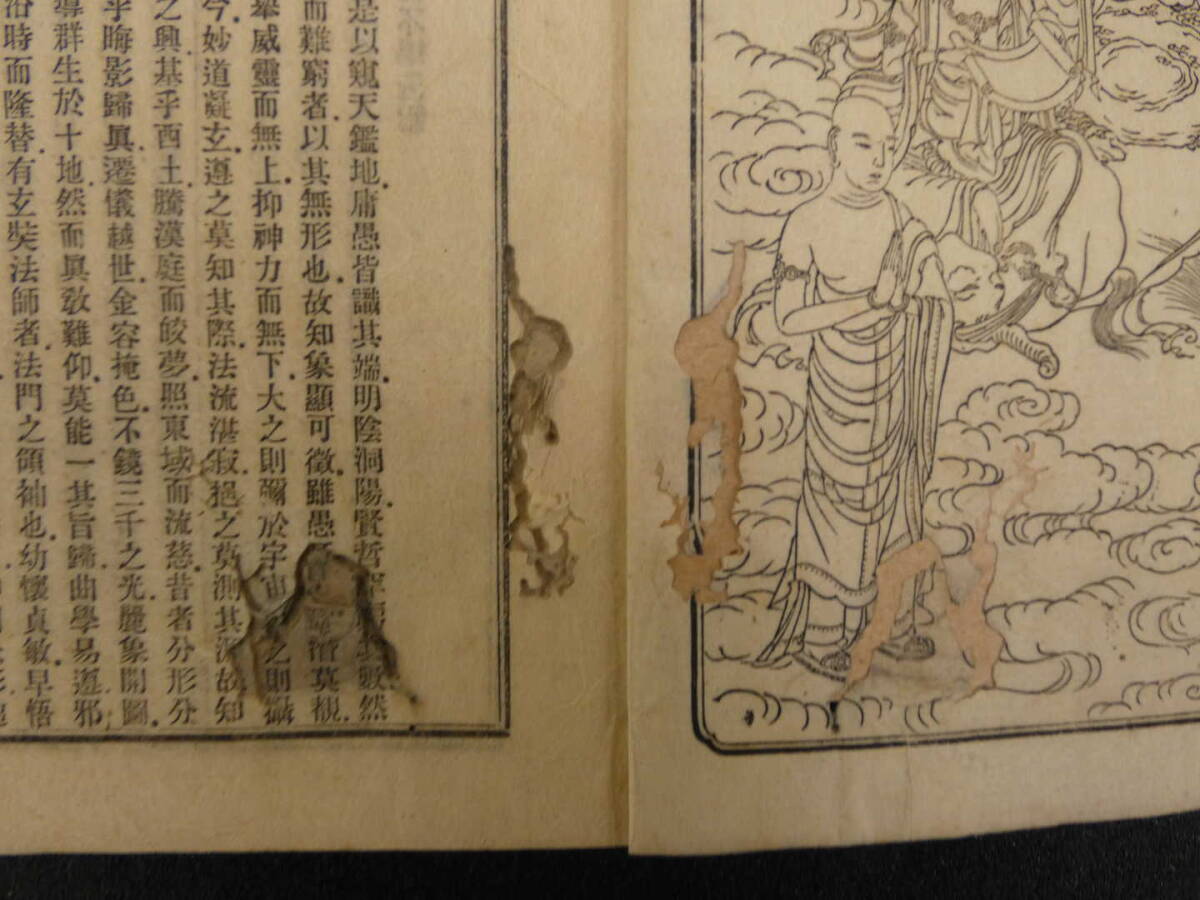 是以窺天鑑地.庸愚皆識其端.明陰洞陽.賢哲其數.然
而難窮者.以其無形也.故知象顯可徵.雖愚潛莫覩.
舉威靈而無上.抑神力而無下.大之則彌於宇宙之則攝
今.妙道凝玄.遵之莫知其際.法流湛寂.挹之莫測其源.故知
之興.基乎西土.騰漢庭而皎夢.照東域而流慈.昔者分形分
乎晦影歸眞.遷儀越世.金容掩色.不鏡三千之光.麗象開圖.
導群生於十地.然而眞敎難仰.莫能一其旨歸.曲學易遵.邪
沿時而隆替.有玄奘法師者.法門之領袖也.幼懷貞敏.早悟